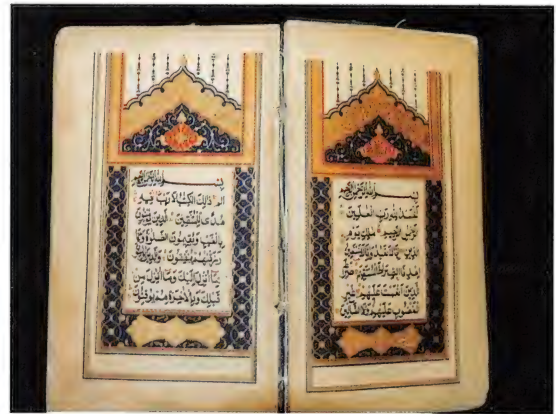 بسم الله الرحمن الرحيم
الحمد لله رب العلمين
الرحمن الرحيم ملك يوم
الدين اياك نعبد واياك نستعين
اهدنا الصراط المستقيم صراط
الذين انعمت عليهم غير
المغضوب عليهم ولا الضالين
بسم الله الرحمن الرحيم
الم ذلك الكتاب لا ريب فيه
هدى للمتقين الذين يؤمنون
بالغيب ويقيمون الصلوة ومما
رزقنهم ينفقون والذين يؤمنون
بما انزل اليك وما انزل من
قبلك وبالاخرة هم يوقنون